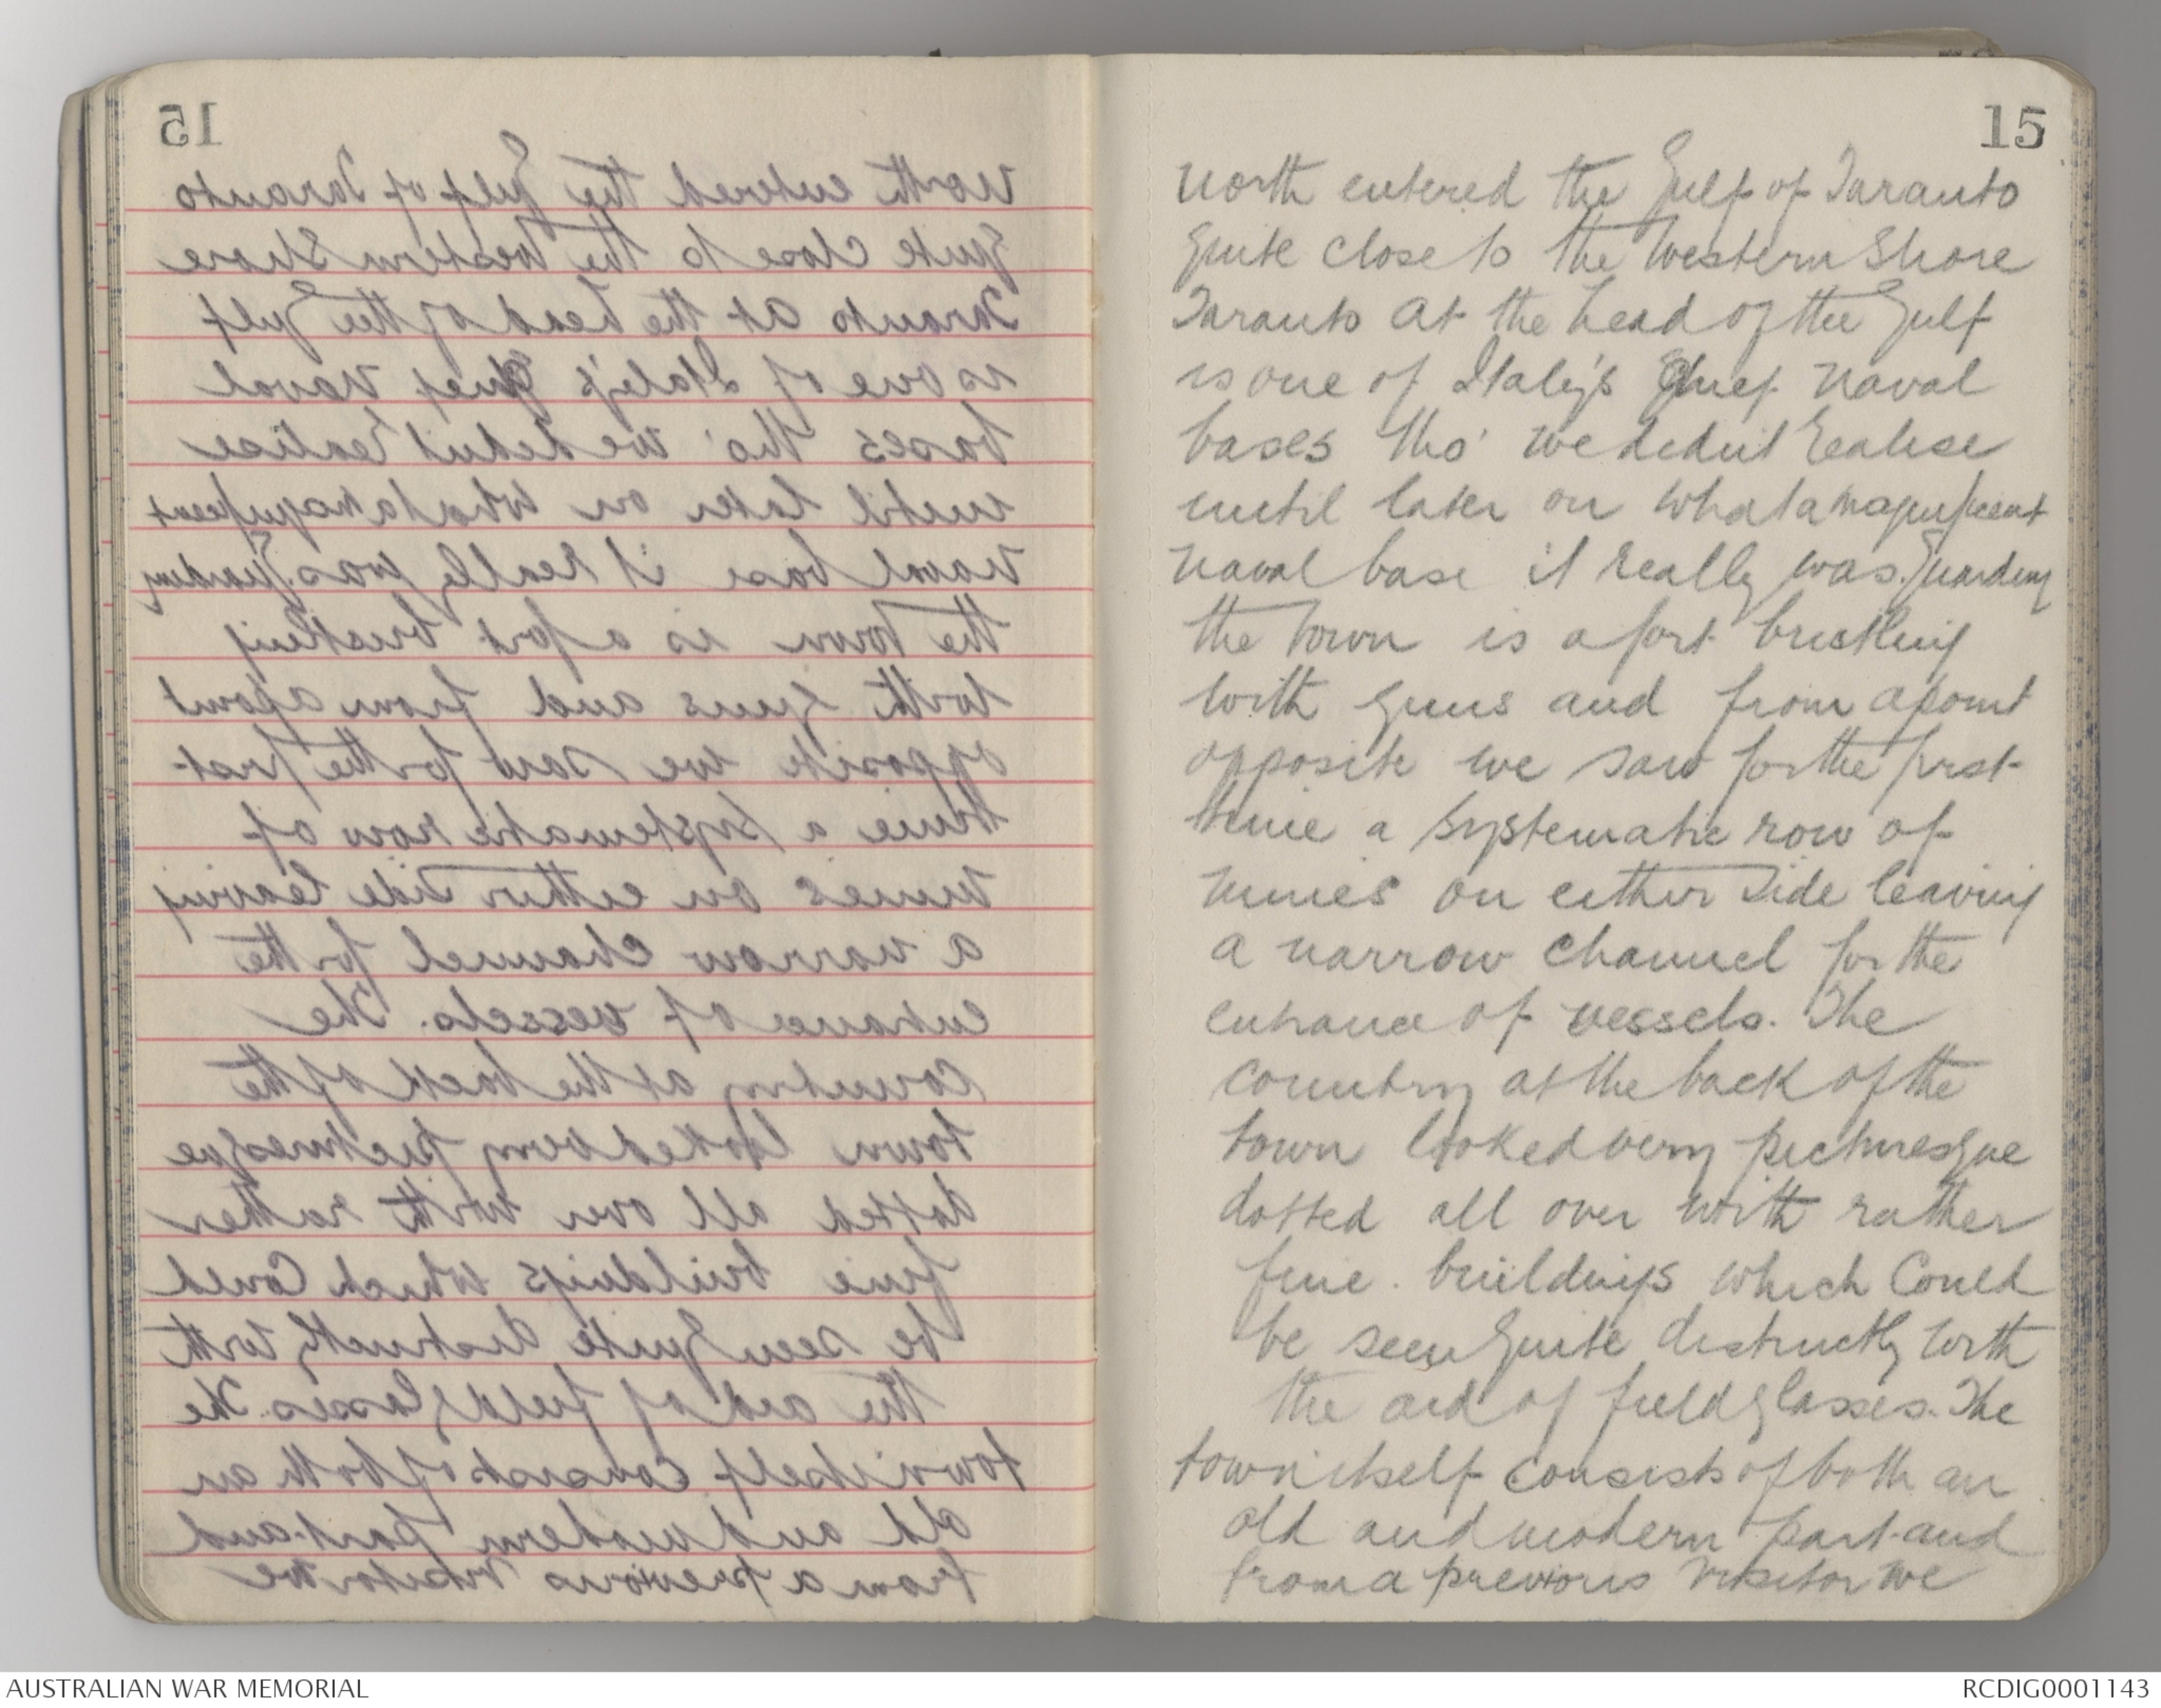 15
North entered the Gulf of Taranto
quite close to the Western Shore
Taranto at the head of the Gulf
is one of Italy's Chief Naval
bases tho' we didnt realise
until later on what a magnificent
Naval base it really was. Guarding
the town is a fort bristling
with guns and from a point
opposite we saw for the first
time a systematic row of
mines on either side leaving
a narrow channel for the
entrance of vessels. The
country at the back of the
town looked very picturesque
dotted all over with rather
fine buildings which could
be seen quite distinctly with
the aid of field glasses. The
town itself consists of both an
old and modern part and
from a previous visitor we
AUSTRALIAN WAR MEMORIAL
RCDIG0001143